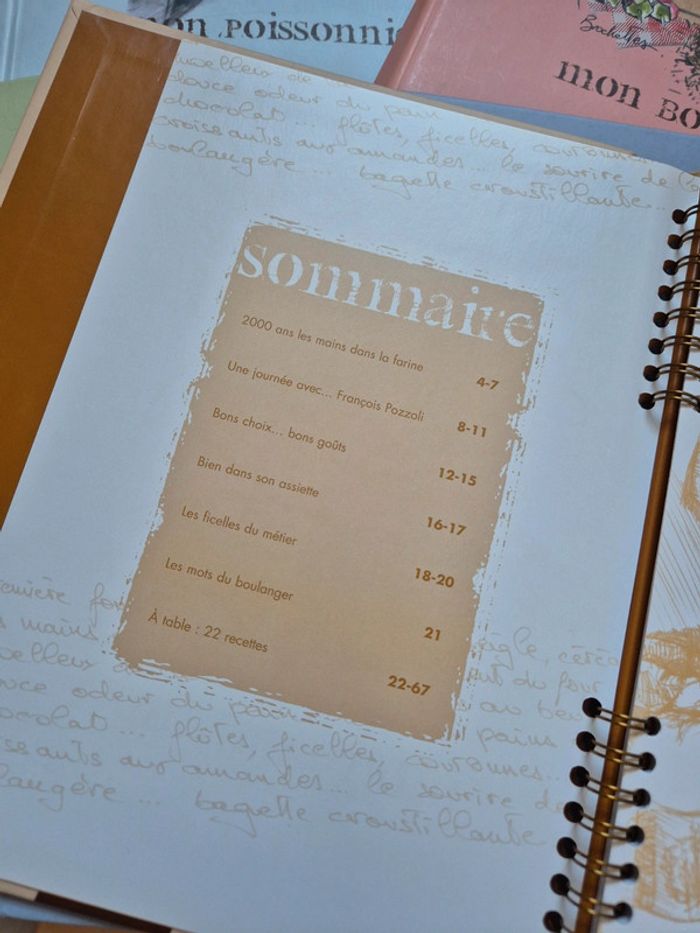 mon POISSONNI
Bochettes
mon BO
douce odeur du pain
chocolat ... flûtes, ficelles, couronnes
croissants aux amandes... le sourire de la
boulangère ... baguette croustillante...
sommaire
2000 ans les mains dans la farine 4-7
Une journée avec... François Pozzoli 8-11
Bons choix... bons goûts 12-15
Bien dans son assiette 16-17
Les ficelles du métier 18-20
Les mots du boulanger 21
À table : 22 recettes 22-67
mains
ouce odeur du pain pains
ocolat ... flûtes, ficelles, couronnes...
issants aux amandes... le sourire de
langère ... baguette croustillante